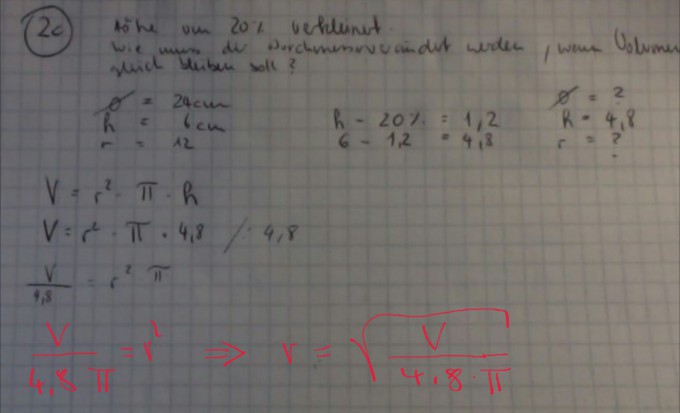 2c Höhe um 20% verkleinert.
Wie muss der Durchmesser verändert werden, wenn Volumen
gleich bleiben soll?
ø = 24cm
h = 6cm
r = 12
h - 20% = 1,2
6 - 1,2 = 4,8
ø = ?
h = 4,8
r = ?
V = r² · π · h
V = r² · π · 4,8 /: 4,8
V/4,8 = r² π
V/(4,8 π) = r² ⇒ r = √(V/(4,8 · π))